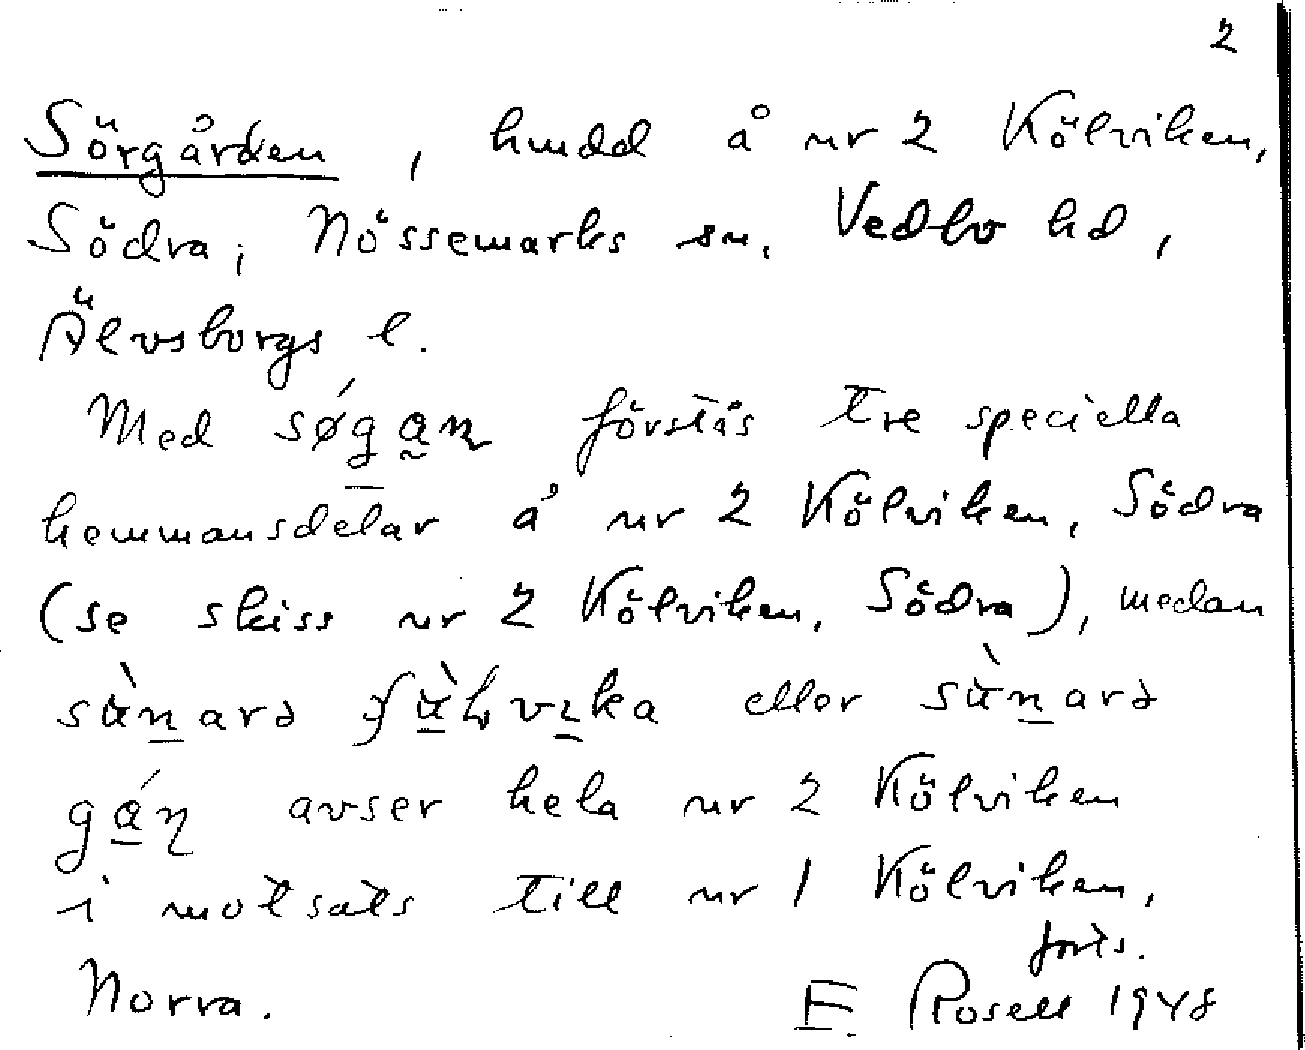 2
Sörgården, hmdd å nr 2 Kölviken,
Södra, Nössemarks sn, Vedbo hd,
Älvsborgs l.
Med förstås tre speciella
hemmansdelar å nr 2 Kölviken, Södra
(se skiss nr 2 Kölviken, Södra), medan
eller
avser hela nr 2 Kölviken
i motsats till nr 1 Kölviken,
forts.
Norra. E. Rosell 1948